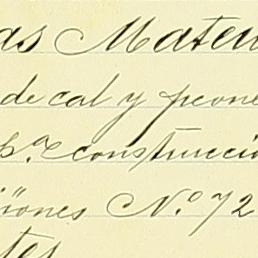 as Mateu
de cal y peone
pª construcció
iones N.º 72
tes